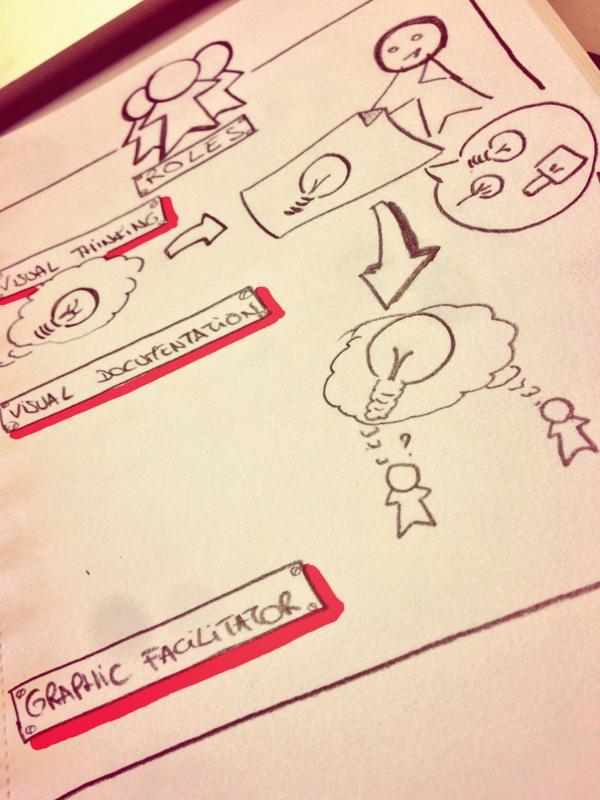 ROLES
VISUAL THINKING
VISUAL DOCUMENTATION
?
GRAPHIC FACILITATOR